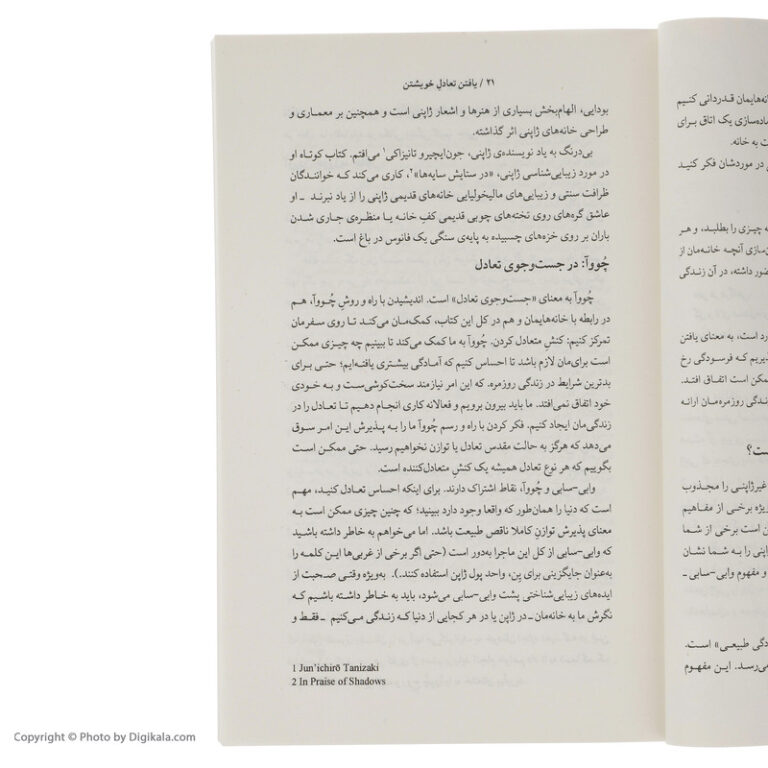 ۲۱ / یافتن تعادلِ خویشتن
بودایی، الهام‌بخش بسیاری از هنرها و اشعار ژاپنی است و همچنین بر معماری و
طراحی خانه‌های ژاپنی اثر گذاشته.
بی‌درنگ به یاد نویسنده‌ی ژاپنی، جون‌ایچیرو تانیزاکی۱ می‌افتم. کتاب کوتاه او
در مورد زیبایی‌شناسی ژاپنی، «در ستایش سایه‌ها»۲، کاری می‌کند که خوانندگان
ظرافت سنتی و زیبایی‌های مالیخولیایی خانه‌های قدیمی ژاپنی را از یاد نبرند ـ او
عاشق گره‌های روی تخته‌های چوبی قدیمی کفِ خانه یا منظره‌ی جاری شدن
باران بر روی خزه‌های چسبیده به پایه‌ی سنگی یک فانوس در باغ است.
چُووآ: در جست‌وجوی تعادل
چُووآ به معنای «جست‌وجوی تعادل» است. اندیشیدن با راه و روشِ چُووآ، هم
در رابطه با خانه‌هایمان و هم در کل این کتاب، کمک‌مان می‌کند تا روی سفرمان
تمرکز کنیم: کنشِ متعادل کردن. چُووآ به ما کمک می‌کند تا ببینیم چه چیزی ممکن
است برای‌مان لازم باشد تا احساس کنیم که آمادگی بیشتری یافته‌ایم؛ حتی برای
بدترین شرایط در زندگی روزمره. که این امر نیازمند سخت‌کوشی‌ست و به خودی
خود اتفاق نمی‌افتد. ما باید بیرون برویم و فعالانه کاری انجام دهیم تا تعادل را در
زندگی‌مان ایجاد کنیم. فکر کردن با راه و رسم چُووآ ما را به پذیرش این امر سوق
می‌دهد که هرگز به حالت مقدس تعادل یا توازن نخواهیم رسید. حتی ممکن است
بگوییم که هر نوع تعادل همیشه یک کنشِ متعادل‌کننده است.
وابی-سابی و چُووآ، نقاط اشتراک دارند. برای اینکه احساس تعادل کنید، مهم
است که دنیا را همان‌طور که واقعا وجود دارد ببینید؛ که چنین چیزی ممکن است به
معنای پذیرش توازنِ کاملا ناقص طبیعت باشد. اما می‌خواهم به خاطر داشته باشید
که وابی-سابی از کل این ماجرا به‌دور است (حتی اگر برخی از غربی‌ها این کلمه را
به‌عنوان جایگزینی برای یِن، واحد پول ژاپن استفاده کنند.). به‌ویژه وقتی صحبت از
ایده‌های زیبایی‌شناختی پشت وابی-سابی می‌شود، باید به خاطر داشته باشیم که
نگرش ما به خانه‌مان ـ در ژاپن یا در هر کجایی از دنیا که زندگی می‌کنیم ـ فقط و
1 Jun’ichirō Tanizaki
2 In Praise of Shadows
نه‌هایمان قدردانی کنیم
ماده‌سازی یک اتاق برای
ت به خانه.
در موردشان فکر کنید
ه چیزی را بطلبد، و هر
ن‌سازی آنچه خانه‌مان از
ضور داشته، در آن زندگی
رد است، به معنای یافتن
ذیریم که فرسودگی رخ
مکن است اتفاق افتد.
ندگی روزمره‌مان ارائه
ست؟
غیرژاپنی را مجذوب
ویژه برخی از مفاهیم
ن است برخی از شما
اپنی را به شما نشان
و مفهوم وابی-سابی ـ
دگی طبیعی» است.
می‌رسد. این مفهوم
Copyright © Photo by Digikala.com